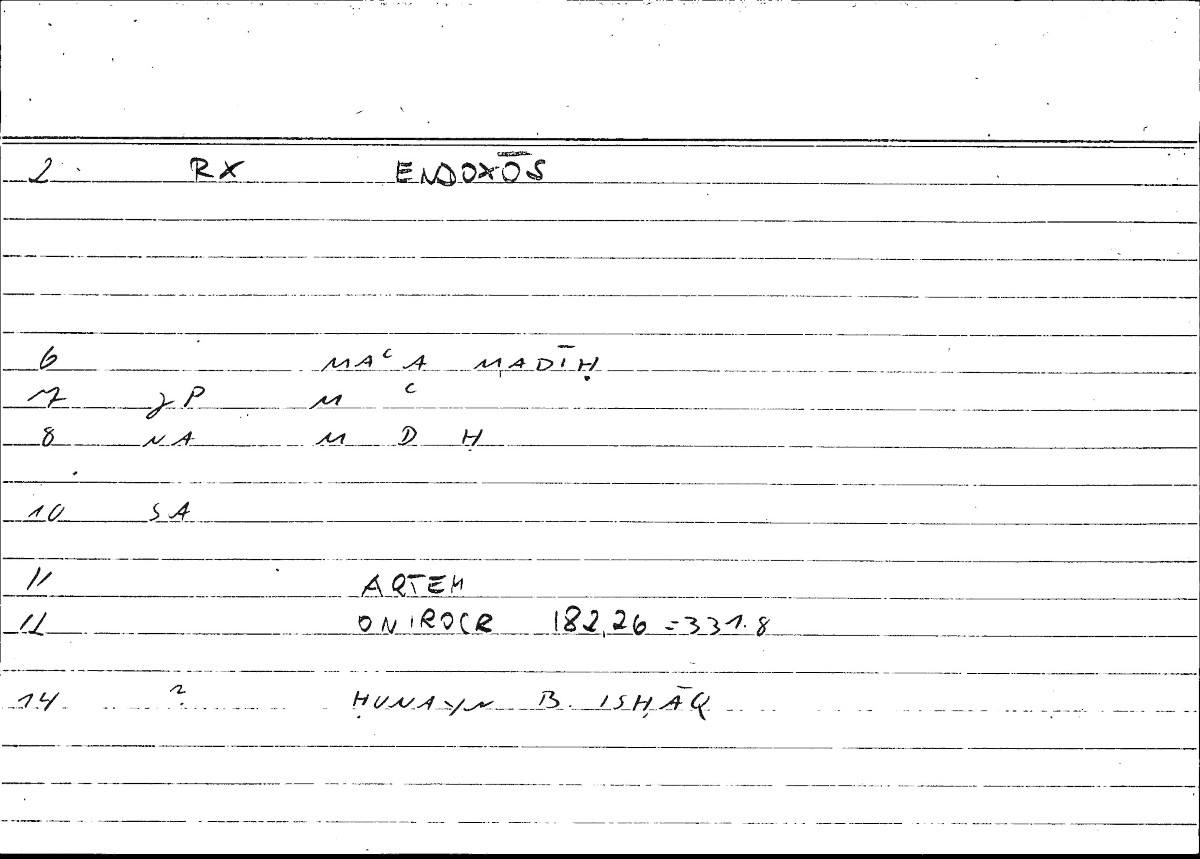 2 RX ENDOXŌS
6 MAʿA MADĪḤ
7 JP M ʿ
8 NA M D Ḥ
10 SA
11 ARTEM
12 ONIROCR 182,26 = 331.8
14 ? ḤUNAYN B. ISḤĀQ